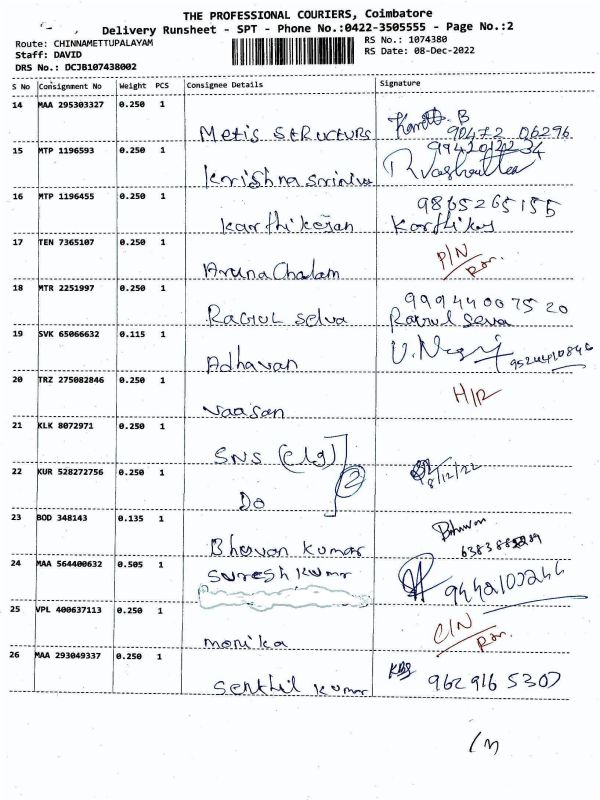 THE PROFESSIONAL COURIERS, Coimbatore
Delivery Runsheet - SPT - Phone No.:0422-3505555 - Page No.:2
Route: CHINNAMETTUPALAYAM
RS No.: 1074380
Staff: DAVID
RS Date: 08-Dec-2022
DRS No.: DCJB107438002
S No Consignment No Weight PCS Consignee Details Signature
14 MAA 295303327 0.250 1
Metis Structurs
B
90472 06296
15 MTP 1196593 0.250 1
Krishna
16 MTP 1196455 0.250 1
9865265155
Karthikeyan
17 TEN 7365107 0.250 1
P/N
ArunaChalam
18 MTR 2251997 0.250 1
99944007520
Ragul Selva
19 SVK 65066632 0.115 1
Adhavan
20 TRZ 275082846 0.250 1
Vaasan
21 KLK 8072971 0.250 1
SNS (Clg)
22 KUR 528272756 0.250 1
8/12/22
2
Do
23 BOD 348143 0.135 1
Bhuvan Kumar
24 MAA 564400632 0.505 1
Suresh Kumar
25 VPL 400637113 0.250 1
C/N
Monika
26 MAA 293049337 0.250 1
962 9165307
Senthil Kumar